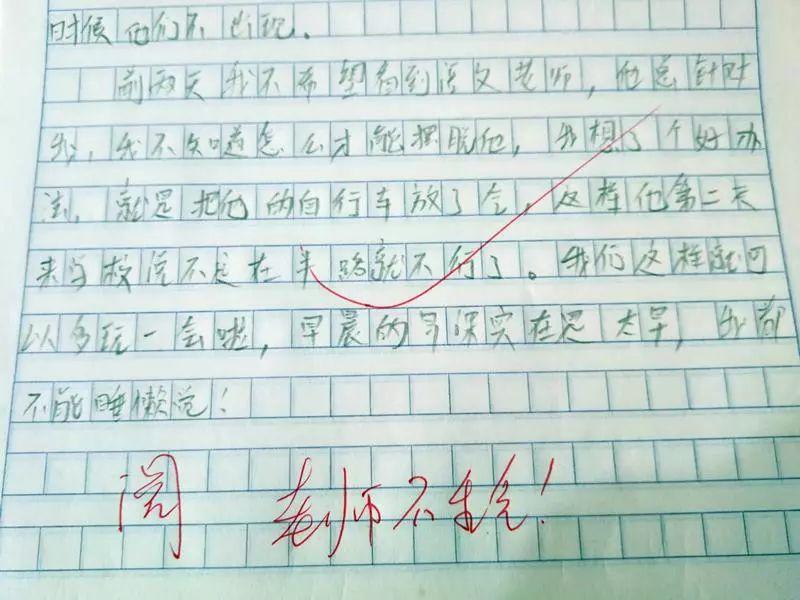 时候他们不出现。
前两天我不希望看到语文老师，他总针对
我，我不知道怎么才能摆脱他，我想了个好办
法，就是把他的自行车放了气，这样他第二天
来学校说不定在半路就不行了。我们这样就可
以多玩一会啦，早晨的早课实在是太早，我都
不能睡懒觉！
阅 老师不生气！